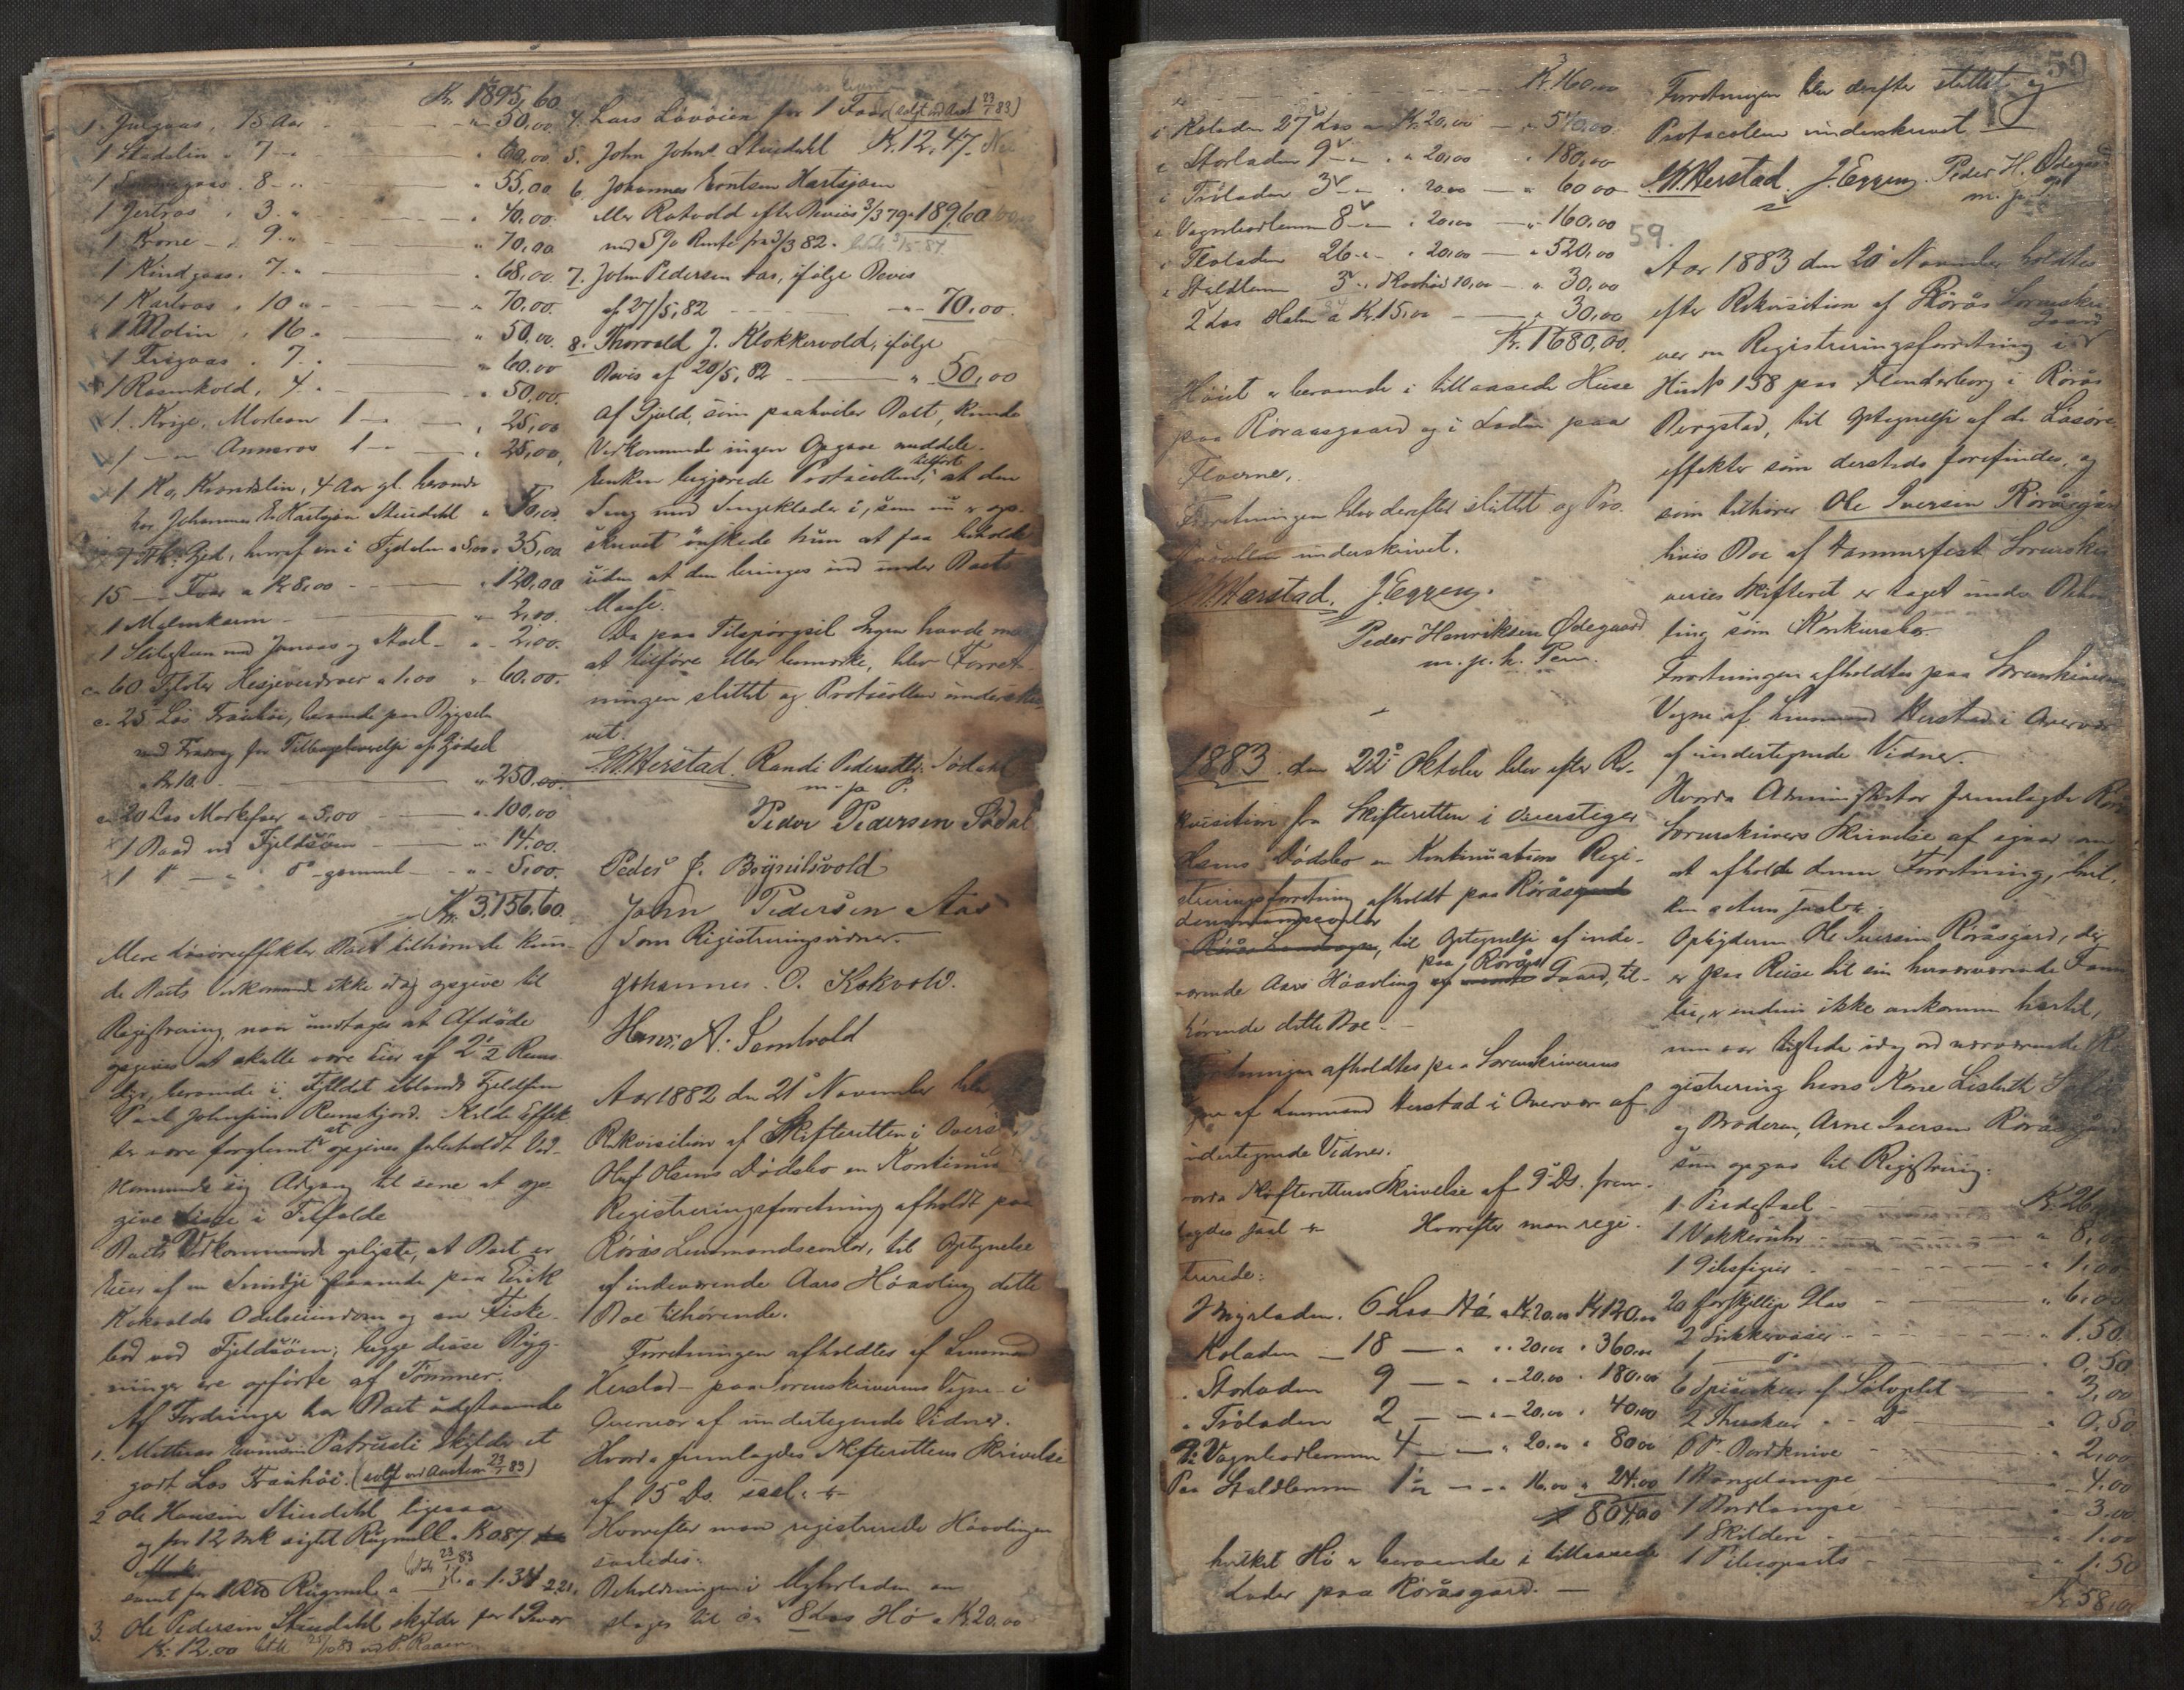 Kr. 1895,60
1 Julgaas, 15 Aar " 50,00
1 Stadslin " 7 " 60,00
1 8 " 55,00
1 Jertros " 3 " 40,00
1 Krone " 9 " 70,00
1 Kindgaas 7 " 68,00
1 Karlros " 10 " 70,00
1 Molin " 16 " 50,00
1 Frigaas 7 " 60,00
1 Rosenkold, 4 " 50,00
1 Kvige, Morlean 1 " 25,00
1 — Annaros 1 " 25,00
1 Ko, Krondslin, 4 Aar gl. beroende
hos Johannes E. Hartsjøen Stuedahl " 50,00
7 Stk. Gjed, hvoraf en i Tydalen a 5,00 " 35,00
15 — Faar a Kr. 8,00 " 120,00
1 Malmkværn " 2,00
1 Slibesten med Jernaas og Stoel " 2,00
ca 60 Fyloter Hesjeverdover a 1,00 " 60,00
ca 25 Las Frauhöi, beroende paa Bygseln
med Fradrag for Tilbageleverelse af Gjødsel
a Kr 10. " 250,00
ca 20 Las Markefoer a 5,00 " 100,00
1 Baad ved Fjeldsjöen " 14,00
1 do — " do gammel " 5,00
Kr. 3,156,60
Mere Lösöreeffekter Boet tilhörende kun-
de Boets Vedkommende ikke idag opgive til
Registrering, naar undtages at Afdöde
opgives at skulle være Eier af 2 1/2 Rens-
dyr, beroende i Fjeldet iblandt Fjeldfin
Paul Johnsens Renshjord. Skulde Effek
ter være forglemt at opgives forbeholdt Ved-
kommende sig Adgang til senere at op-
give disse i Tilfælde
Boets Vedkommende oplyste, at Boet er
Eier af en Smidje staaende paa Erik
Kokvolds Odelseiendom og en Fiske-
bod ved Fjeldsjöen; begge disse Byg-
ninger ere opförte af Tömmer.
Af Fordringer har Boet udestaaende
1. Mathias Patrusli skylder et
godt Las Frauhöi. (solgt ved Auction 23/1 83)
2 Ole Hansen Stuedahl ligesaa
og for 12 Mk sigtet Rugmell a Kr 0,87
samt for Rugmel a 1.34 2.21.
3. Ole Pedersen Stuedahl skylder for 1 Qvær
Kr. 12,00 betalt 25/10 83 ved P. Raaen
4. Lars Lövöien for 1 Faar (solgt ved Auct 23/1 83)
5. John Johns. Stuedahl Kr. 12,47.
6. Johannes Bentsen Hartsjöen
eller Ratvold efter Bevis 3/3 79 " 189,60
med 5% Rente fra 3/3 82.
7. John Pedersen Aas, ifölge Bevis
af 27/5, 82 " 70,00.
8. Thorvald J. Klokkervold, ifölge
Bevis af 20/5, 82 " 50,00
Af Gjæld, som paahviler Boet, kunde
Vedkommende ingen Opgave meddele.
Enken begjærede Protocollen tilfört, at den
Seng med Sengeklæder i, som nu er op-
skrevet önskede hun at faa beholde
uden at den bringes ind under Boets
Masse.
Da paa Tilspörgsel Ingen havde mere
at tilföre eller bemærke, blev Forret-
ningen sluttet og Protocollen underskre
vet.
G.K. Herstad. Randi Pedersdtr. Sødahl
m. p. P.
Peder Pedersen Sødal
Peder J. Brynilsvold
John Pedersen Aas
Som Registreringsvidner.
Johannes. O. Kokvold.
Hans: A: Semhvold
Aar 1882 den 21de November blev
Rekvisition af Skifteretten i Overst.
Oluf Olsens Dödsbo en Kontinua-
Registreringsforretning afholdt paa
Rörås Lensmandscontor, til Optegnelse
af indeværende Aars Höavling dette
Boe tilhörende.
Forretningen afholdtes af Lensmand
Herstad paa Sorenskriverens Vegne i
Overvær af undertegnede Vidner.
Hvorda fremlagdes Skifterettens Skrivelse
af 15de Ds. saal. —
Hvorefter man registrerede Höavlingen
saaledes:
Beholdningen i Myhrladen an
slages til ca 8 Las Hö a Kr. 20,00
Kr. 160,00
i Koladen 27 Las a Kr. 20,00 — " 540,00
i Storladen 9 — " " 20,00 " 180,00
i Tröladen 3 — " 20,00 — " 60,00
i Vognbodlemen 8 — " 20,00 — " 160,00
i Floladen 26 — " 20,00 — " 520,00
i Staldlemen 3 " Skovhöi 10,00 — " 30,00
2 Las Halm a Kr. 15,00 — " 30,00
Kr. 1680,00.
Höiet er beroende i tillaasede Huse
paa Röraasgaard og i Laden paa
Floerne.
Forretningen blev derefter sluttet og Pro-
tocollen underskrivet.
G.K. Herstad. J. Eggen.
Peder Henriksen Ødegaard
m. p. h. Pen.
1883 den 22de Oktober blev efter Re-
kvisition fra Skifteretten i Overstiger
Olsens Dödsbo en Kontinuations Regi-
streringsforretning afholdt paa Röråsgaard
til Optegnelse af inde-
værende Aars Höavling paa Rörås Gaard, til-
hörende dette Boe.
Forretningen afholdtes paa Sorenskriverens
Vegne af Lensmand Herstad i Overvær af
undertegnede Vidner.
Hvorda Skifterettens Skrivelse af 9de Ds. frem-
lagdes saal — Hvorefter man regi-
strerede:
I Myrladen. 6 Las Hö. a Kr. 20,00 Kr 120,00
Koladen — 18 — " " 20,00 " 360,00
" Storladen 9 — " " 20,00 " 180,00
" Tröladen 2 — " " 20,00 " 40,00
Pa Vognbodlemmen 4 — " 20,00 " 80,00
Paa Staldlemmen 1 1/2 — " 16,00 " 24,00
804,00
hvilket Hö er beroende i tillaasede
Lader paa Röråsgaard. —
50
Forretningen blev derefter sluttet og
Protocollen underskrevet
G.K. Herstad. J. Eggen. Peder H. Ødegaard
m. p.
59.
Aar 1883 den 20 November holdtes
efter Rekvisition af Rörås Sorenskri
ver en Registreringsforretning i Gaard
Hus No 158 paa Flanderborg i Rörås
Bergstad, til Optegnelse af de Lösöre-
effekter som dersteds forefindes, og
som tilhörer Ole Iversen Röråsgård
hvis Boe af Hammerfest Sorenskri
veries Skifteret er taget under Behand
ling som Konkursbo.
Forretningen afholdtes paa Sorenskriverens
Vegne af Lensmand Herstad i Overvær
af undertegnede Vidner.
Hvorda Administrator fremlagde Rörås
Sorenskrivers Skrivelse af igaar om
at afholde denne Forretning, hvil-
ken acten saal.
Opbyderen Ole Iversen Röråsgård, der
er paa Reise til sin herværende Fami
lie, er endnu ikke ankommen hertil,
men var tilstede idag ved nærværende Re
gistrering hans Kone Lisbeth
og Broderen, Arne Iversen Röråsgård
som opgav til Registrering:
1 Piedestael Kr. 26
1 Vækkeruhr " 8,00
1 Gibsfigur " 1,00
20 forskjellige Glas " 6,00
2 Sukkervaser " 1.50
1 do " 0,50
6 Spiseskeer af Sølvplet " 3,00
2 Theskeer " do " 0,50
6 P. Bordknive " 2,00
1 Hængelampe " 4.00
1 Bordlampe " 3,00
1 Skilderi " 1,00
1 " 1.50
Kr. 58,00